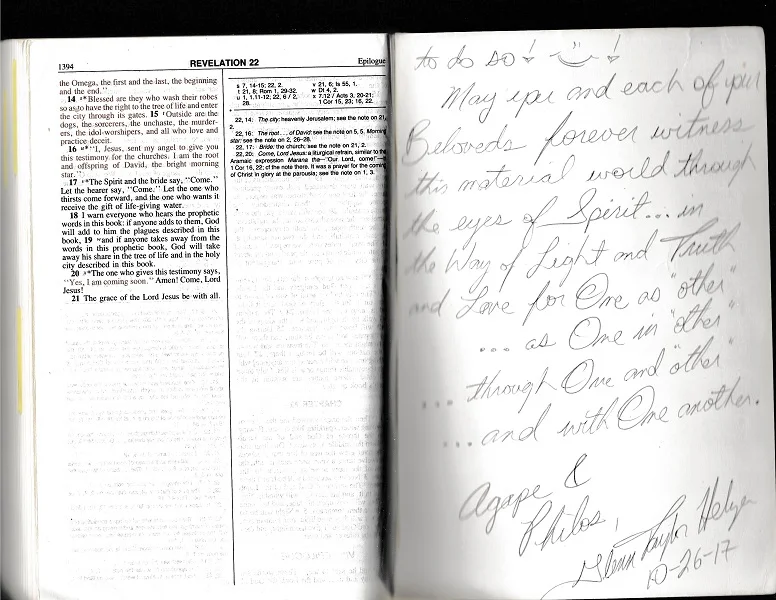 1394 REVELATION 22 Epilogue
the Omega, the first and the last, the beginning
and the end."
14 *Blessed are they who wash their robes
so as to have the right to the tree of life and enter
the city through its gates. 15 Outside are the
dogs, the sorcerers, the unchaste, the murder-
ers, the idol-worshipers, and all who love and
practice deceit.
16 "I, Jesus, sent my angel to give you
this testimony for the churches. I am the root
and offspring of David, the bright morning
star."
17 *The Spirit and the bride say, "Come."
Let the hearer say, "Come." Let the one who
thirsts come forward, and the one who wants it
receive the gift of life-giving water.
18 I warn everyone who hears the prophetic
words in this book: if anyone adds to them, God
will add to him the plagues described in this
book, 19 and if anyone takes away from the
words in this prophetic book, God will take
away his share in the tree of life and in the holy
city described in this book.
20 *The one who gives this testimony says,
"Yes, I am coming soon." Amen! Come, Lord
Jesus!
21 The grace of the Lord Jesus be with all.
s 7, 14-15; 22, 2.
t 21, 8; Rom 1, 29-32.
u 1, 1.11-12; 22, 6 / 2,
28.
v 21, 6; Is 55, 1.
w Dt 4, 2.
x 7.12 / Acts 3, 20-21;
1 Cor 15, 23; 16, 22.
22, 14: The city: heavenly Jerusalem; see the note on 21,
2.
22, 16: The root . . . of David: see note on 5, 5. Morning
star: see the note on 2, 26-28.
22, 17: Bride: the church; see the note on 21, 2.
22, 20: Come, Lord Jesus: a liturgical refrain, similar to the
Aramaic expression Marana tha—"Our Lord, come!"—
1 Cor 16, 22; cf the note there. It was a prayer for the coming
of Christ in glory at the parousia; see the note on 1, 3.
to do so!
May you and each of your
Beloveds forever witness
this material world through
the eyes of Spirit... in
the Way of Light and Truth
and Love for One as "other"
... as One in "other"
... through One and "other"
... and with One another.
Agape &
Philos,
Glenn Taylor
10-26-17